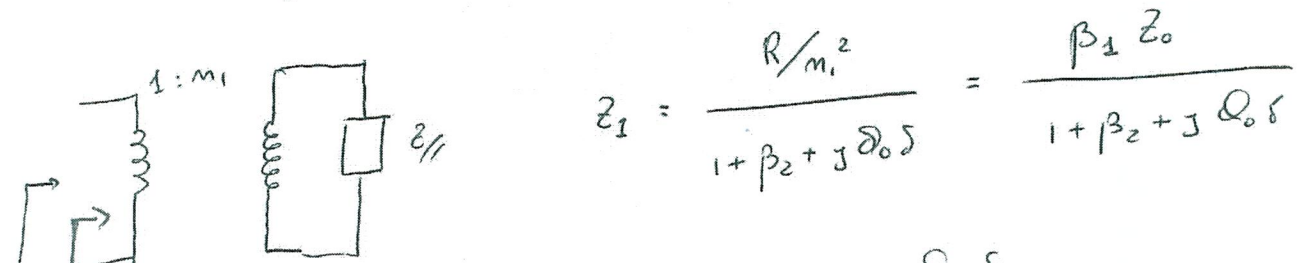 1 : n₁
Z//
Z₁ = R/n₁² / (1 + β₂ + j Q₀ δ) = β₁ Z₀ / (1 + β₂ + j Q₀ δ)